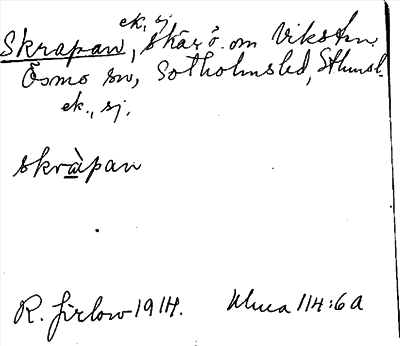 ek., sj.
Skrapan, skär ö. om Viksten.
Ösmo sn, Sotholmshd, Sthmsl.
ek., sj.
skràpan
R. Jirlow 1914. Uhca 114:6a